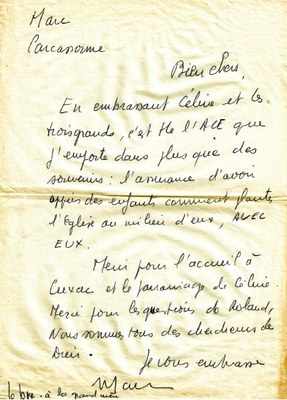 Marc
Carcassonne
Bien chers,
En embrassant Céline et les
trois grands, c'est toute l'ACE que
j'emporte dans plus que des
souvenirs : l'assurance d'avoir
appris des enfants comment planter
l'Eglise au milieu d'eux, AVEC
EUX.
Merci pour l'accueil à
Cuxac et le parrainage de Céline.
Merci pour les questions de Roland,
Nous sommes tous des chercheurs de
Dieu.
Je vous embrasse
Marc
à la